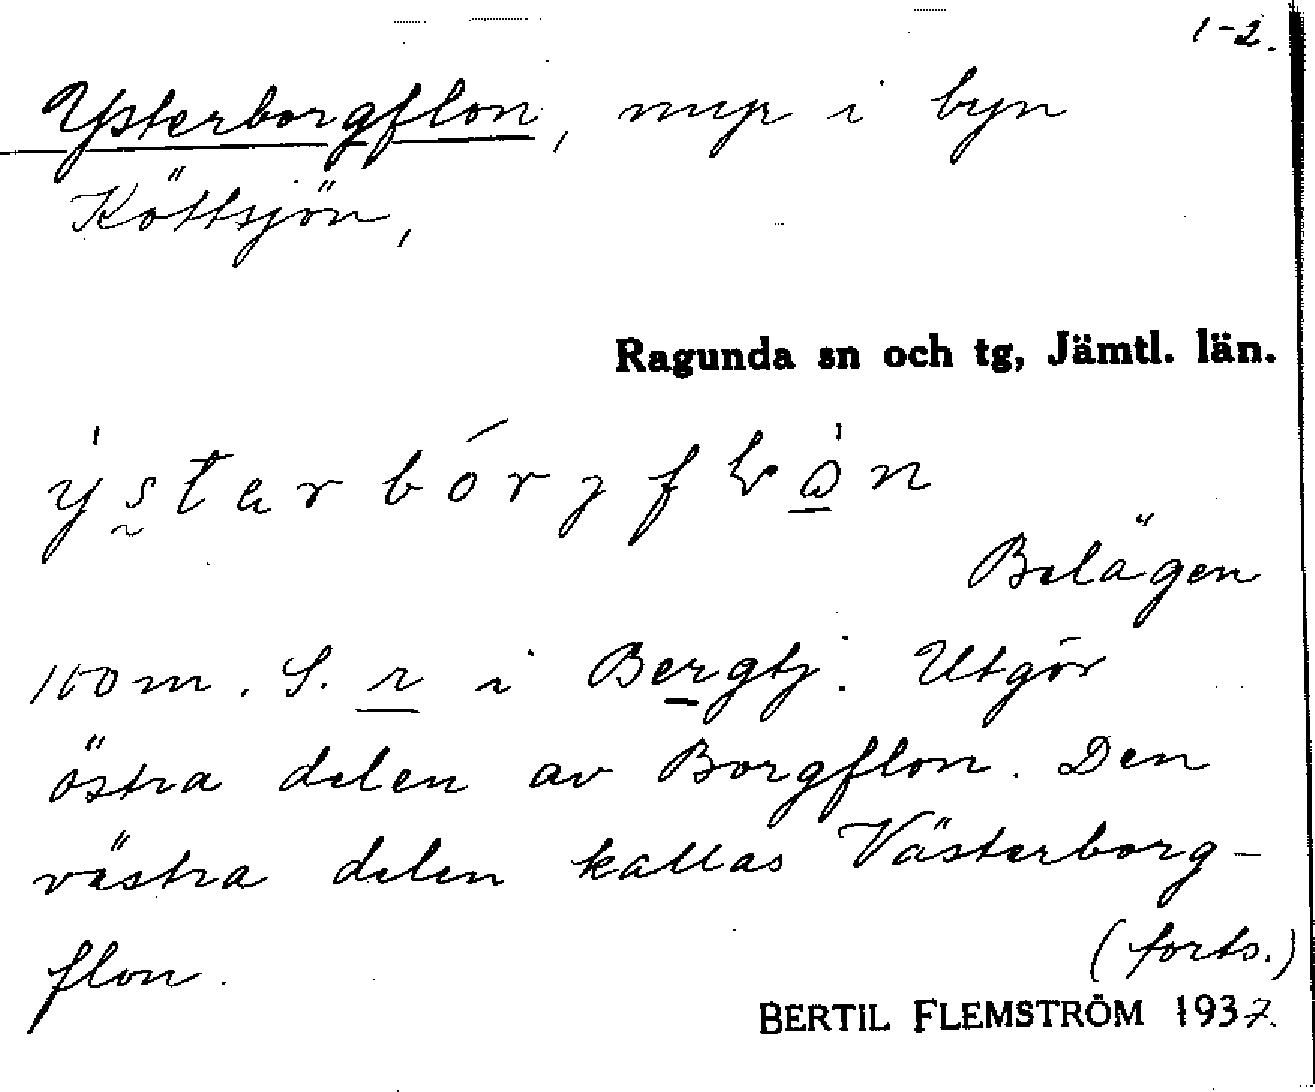 1-2.
Ysterborgflon, myr i byn
Köttsjön,
Ragunda sn och tg, Jämtl. län.
Belägen
100 m. S. r i Bergtj. Utgör
östra delen av Borgflon. Den
västra delen kallas Västerborg-
flon.
(forts.)
BERTIL FLEMSTRÖM 1937.